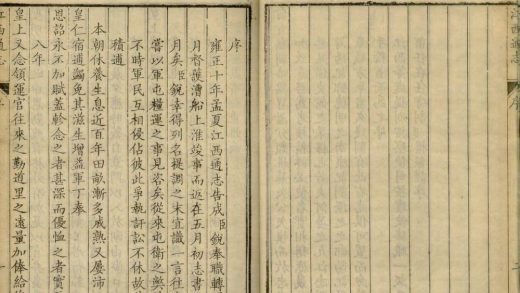 江西通志
序
二
序
雍正十年孟夏江西通志告成臣銳奉職轉
月督護漕船上淮竣事而返在五月初志書
月矣臣銳幸得列名提調之末宜識一言往
嘗以軍屯糧運之事見咨矣從來屯衛之獘
不時軍民互相侵佔彼此爭執訐訟不休故
積逋
本朝休養生息近百年田畝漸多成熟又屢沛
皇仁宿逋蠲免其滋生增益軍丁奉
恩詔永不加賦蓋軫念之者甚深而優恤之者實
八年
皇上又念領運官往來之勤道里之遠量加俸給
江西通志
序
一